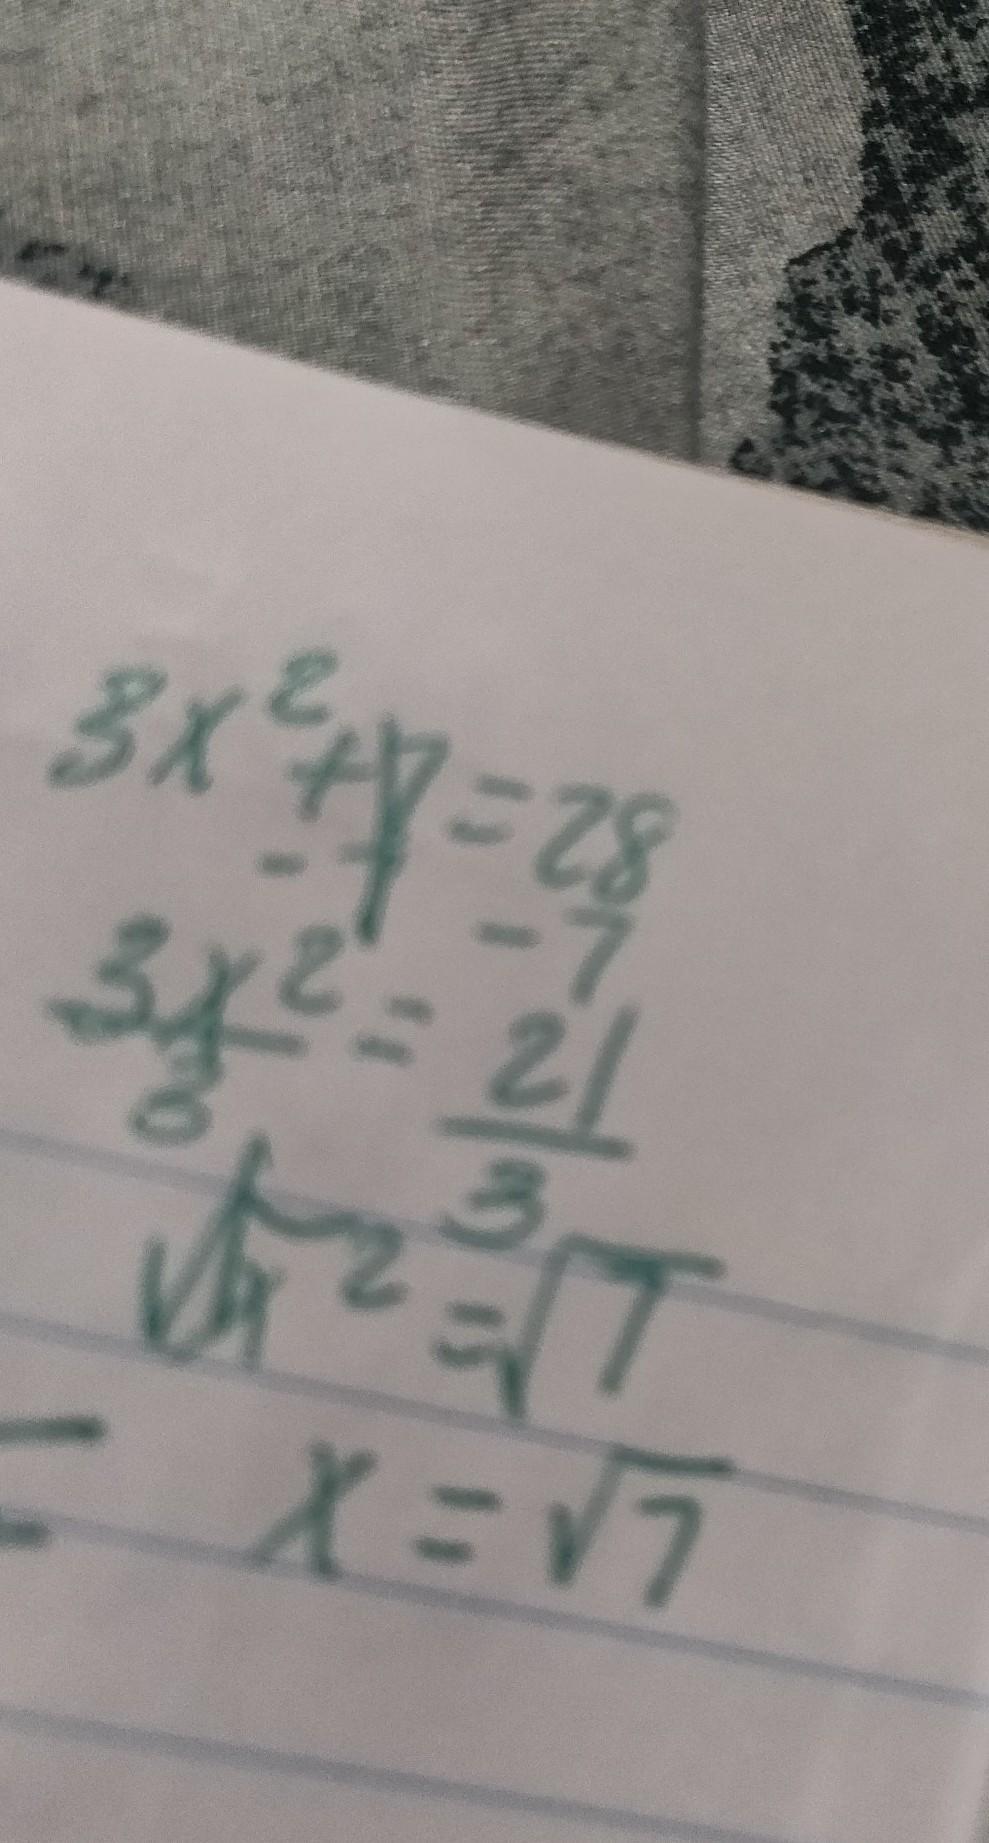 3x² + 7 = 28
- 7 - 7
3x² = 21
3 3
√x² = √7
x = √7